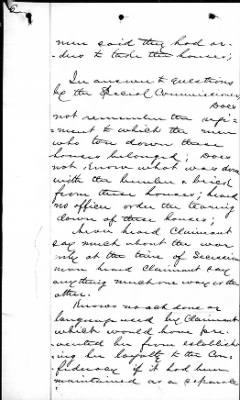 men said they had or-
ders to take the houses;
In answer to questions
by the Special Commissioner,
Does
not remember the regi-
ment to which the men
who tore down these
houses belonged; Does
not know what was done
with the lumber & brick
from these houses; heard
no officer order the tearing
down of these houses;
Never heard Claimant
say much about the war
only at the time of Secession
never heard Claimant say
anything much one way or the
other.
Knows no act done or
language used by Claimant
which would have pre-
vented her from establish-
ing her loyalty to the Con-
federacy if it had been
maintained as a separate